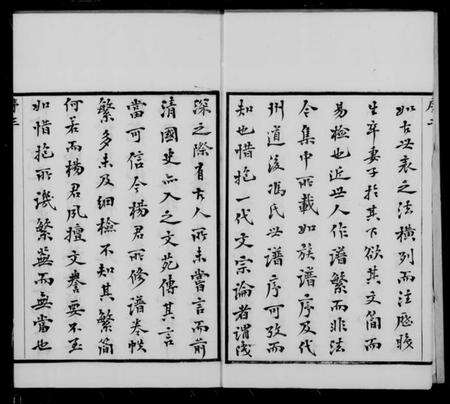 如古世表之法橫列而注歷職
生卒妻子於其下欲其文簡而
易檢也近世人作譜繁而非法
今集中所載如族譜序及代
州道後馮氏世譜序可攷而
知也惜抱一代文宗論者謂淺
深之際有古人所未嘗言而前
清國史亦入之文苑傳其言
當可信今楊君所修譜卷帙
繁多未及細檢不知其繁簡
何若而楊君夙擅文譽要不至
如惜抱所譏繁蕪而無當也